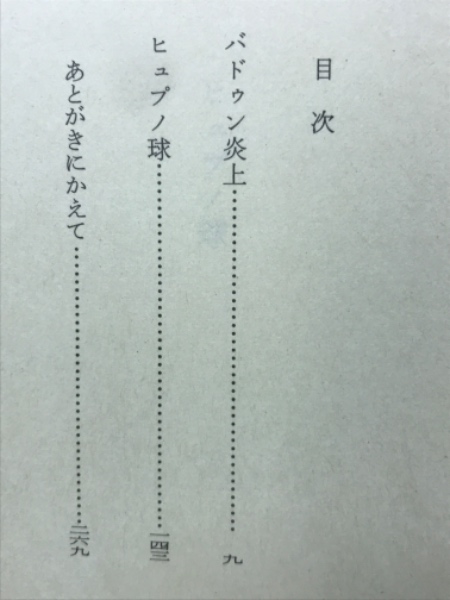 目次
バドゥン炎上……九
ヒュプノ球……一四三
あとがきにかえて……二六九